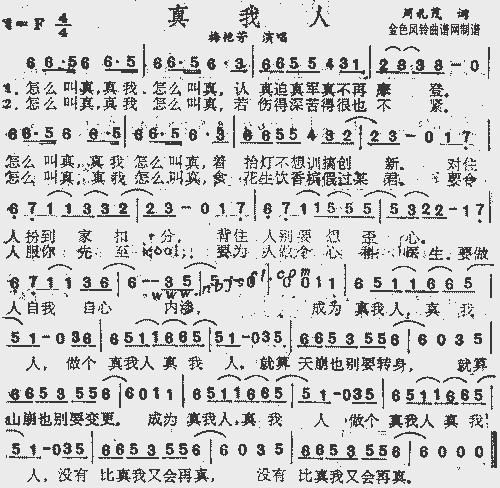 真我人
1=F 4/4
周礼茂 词
梅艳芳 演唱
金色风铃曲谱网制谱
6 6·56 6·5 | 6 6·56 6·3 | 6 6 5 5 431 | 2 3 3 3 - 0
1. 怎么叫真,真我 怎么叫真,认 真迫真军真不再 摩 登。
2. 怎么叫真,真我 怎么叫真,若 伤得深苦得很也不 紧。
怎么叫真,真我 怎么叫真,着 拍灯不想训搞创 新。 对住
怎么叫真,真我 怎么叫真,食 花生饮香槟假过某 君。 要令
6 7 1 1 3 3 2 | 2 3 - 0 1 7 | 6 7 1 1 5 5 5 | 5 3 2 2 - 1 7
人扮到 家 扣 分, 背住 人别要 想 歪 心。
人服你 先 至 kool; 要为 人做个 心 医生,要做
6 7 1 1 3 6 | 6 - 3 5 | 5 1 - 0
www.nbjscl.com
人自我 自心 内渗, 成为 真我人,真 我
5 1 - 0 3 6 | 6 5 1 1 6 6 5 | 5 1 - 0 3 5 | 6 6 5 3 5 5 6 | 6 0 3 5
人, 做个 真我人 真 我 人。就算 天崩也别要转身, 就算
6 6 5 3 5 5 6 | 6 0 3 5 | 6 5 1 1 6 6 5 | 5 1 - 0 3 6 | 6 5 1 1 6 6 5
山崩也别要变更。 成为 真我人,真 我 人 做个 真我人 真我
5 1 - 0 3 5 | 6 6 5 3 5 5 6 | 6 0 3 5 | 6 6 5 3 5 5 6 | 6 0 0 0
人,没有 比真我又会再真, 没有 比真我又会再真。